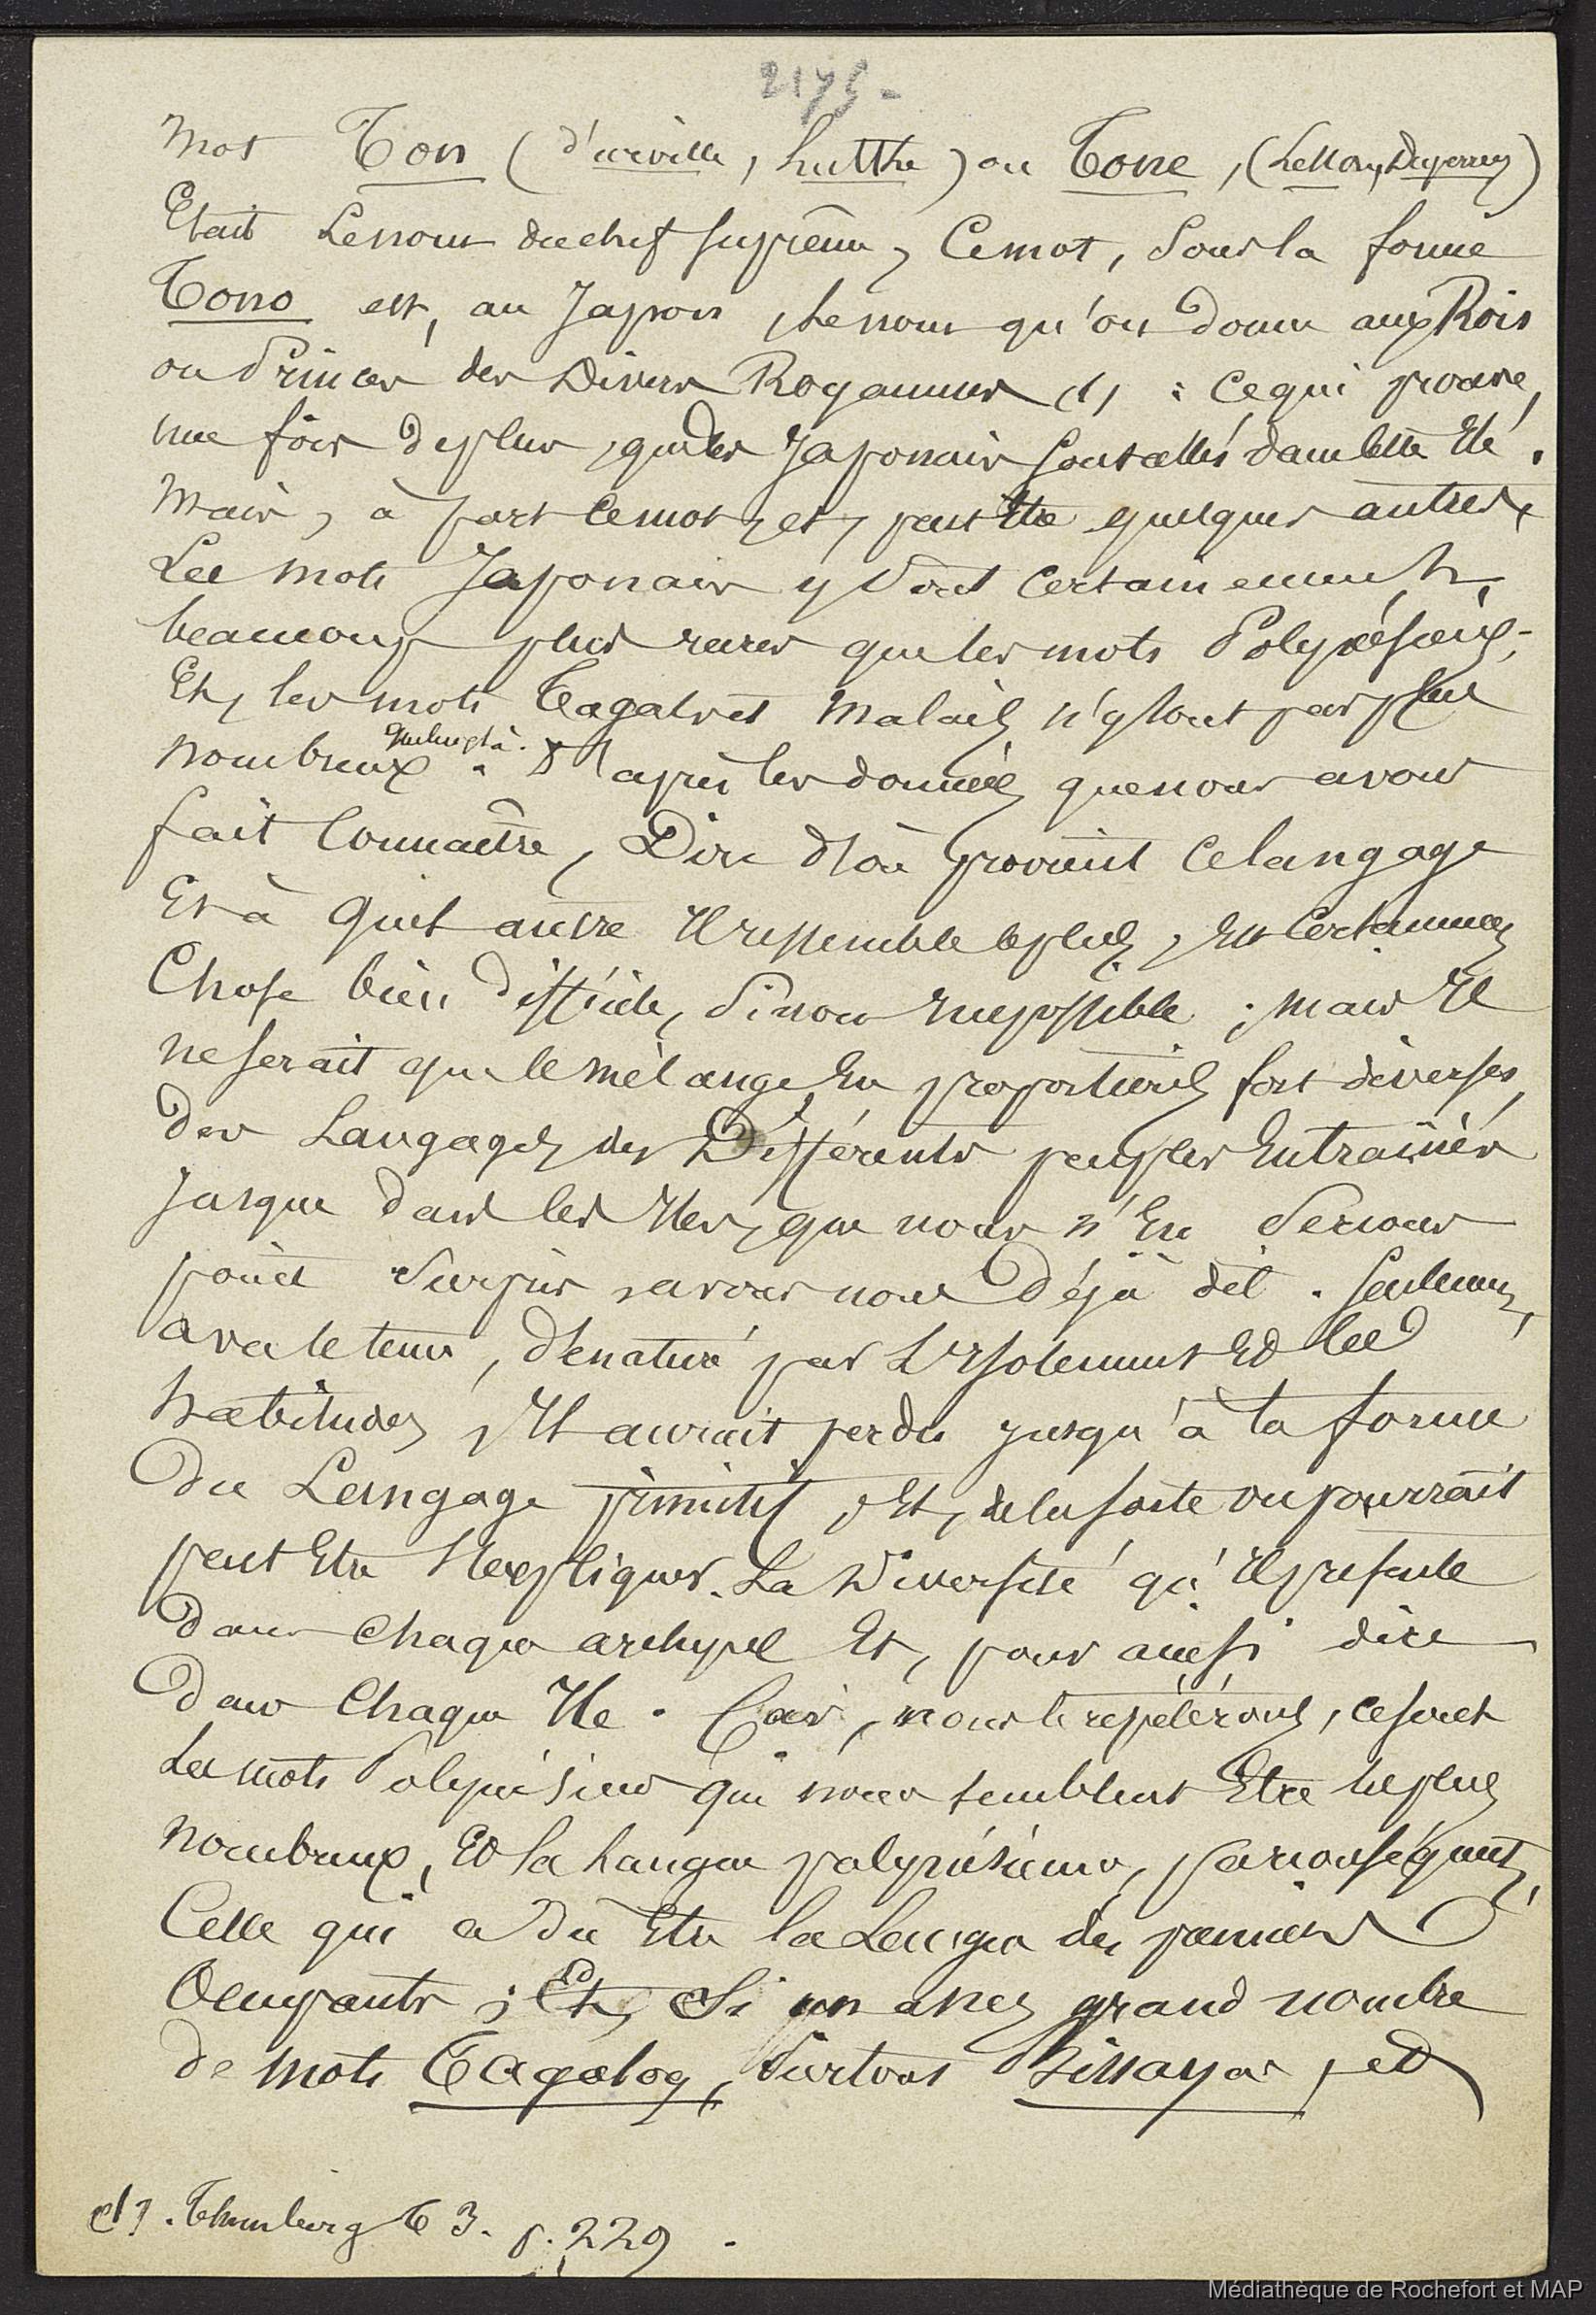 2175-
mot Ton (d'urville, Lutthe) ou Tone, (Lesson, Duperrey)
Etait Le nom du chef suprême, Ce mot, sous la forme
Tono est, au Japon, le nom qu'on donne aux Rois
ou Princes des Divers Royaumes (1) : Ce qui prouve,
une fois de plus, que les Japonais sont allés dans cette île.
Mais, à part ce mot, et, peut être quelques autres,
Les mots Japonais y sont certainement,
beaucoup plus rares que les mots Polynésiens;
Et, les mots Tagals et Malais, n'y sont pas plus
nombreux. D'après les données que nous avons
fait Connaître, Dire d'où provient ce langage
Et à quel autre Il ressemble le plus, est certainement
Chose bien difficile, sinon impossible ; mais Il
ne serait que le mélange, En proportions fort diverses,
des Langages des Différents peuples Entraînés
jusque dans les Iles, que nous n'en serions
point surpris, avons nous Déjà dit. Seulement,
avec le temps, dénaturé par L'Isolement Et les
habitudes, Il aurait perdu jusqu'à la forme
du Langage primitif, Et, de la sorte on pourrait
peut Etre s'expliquer La Diversité qu'Il présente
dans chaque archipel Et, pour ainsi dire
dans Chaque Ile. Car, nous le répéterons, ce sont
Les mots Polynésiens qui nous semblent Etre les plus
nombreux, Et la Langue polynésienne, par conséquent,
Celle qui a dû Etre la Langue des premiers
Occupants ; Et, Si un assez grand nombre
de mots Tagalog, surtout Bissayas, et
(1). Thunberg T 3. p. 229.
Médiathèque de Rochefort et MAP